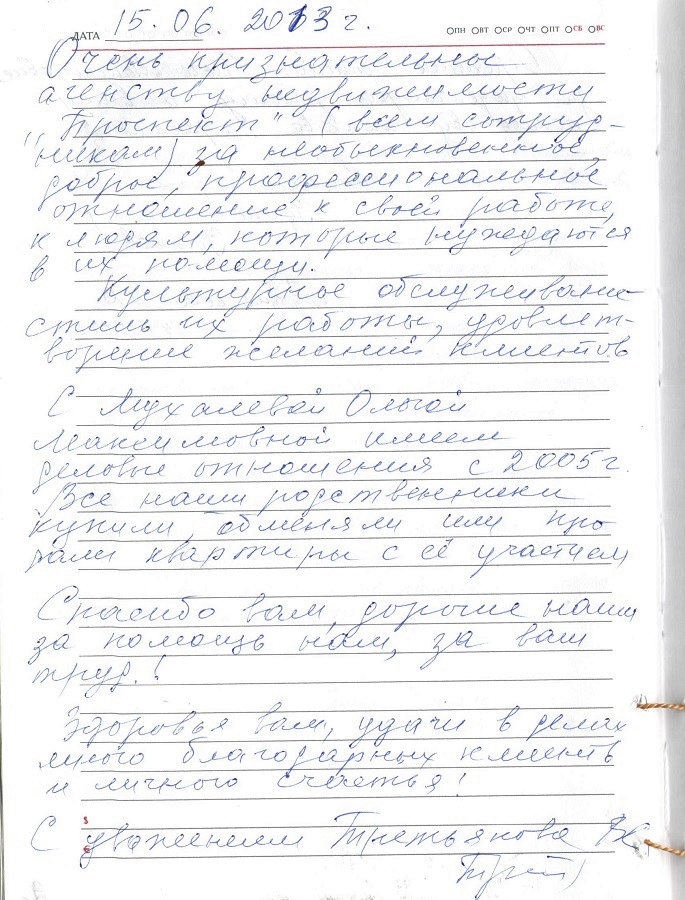 ДАТА 15.06.2013 г. ПН ВТ СР ЧТ ПТ СБ ВС
Очень признательные
агенству недвижимости
„Проспект" (всем сотруд-
никам) за необыкновенное,
доброе, профессиональное
отношение к своей работе,
к людям, которые нуждаются
в их помощи.
Культурное обслуживание
стиль их работы, удовлет-
ворение желаний клиентов
С Мухалевой Ольгой
Максимовной имеем
деловые отношения с 2005 г.
Все наши родственники
купили, обменяли или про
дали квартиры с её участием
Спасибо вам, дорогие наши
за помощь нам, за ваш
труд.!
Здоровья вам, удачи в делах
много благодарных клиентов
и личного счастья!
С уважением Третьякова